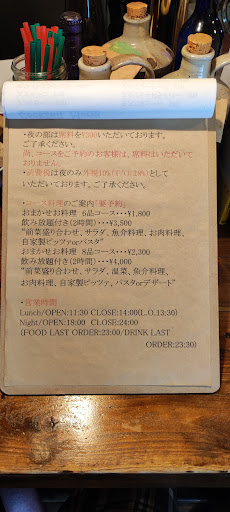 ・夜の部は席料を¥300いただいております。
ご了承ください。
尚、コースをご予約のお客様は、席料はいただいて
おりません。
・消費税は夜のみ外税10%(T/Oは8%)として
いただいております。ご了承ください。
・コース料理のご案内「要予約」
おまかせお料理 6品コース・・・¥1,800
飲み放題付き(2時間)・・・¥3,500
"前菜盛り合わせ、サラダ、魚介料理、お肉料理、
自家製ピッツァorパスタ"
おまかせお料理 8品コース・・・¥2,300
飲み放題付き(2時間)・・・¥4,000
"前菜盛り合わせ、サラダ、温菜、魚介料理、
お肉料理、自家製ピッツァ、パスタorデザート"
・営業時間
Lunch/OPEN:11:30 CLOSE:14:00(L.O.13:30)
Night/OPEN:18:00 CLOSE:24:00
(FOOD LAST ORDER:23:00/DRINK LAST
ORDER:23:30)